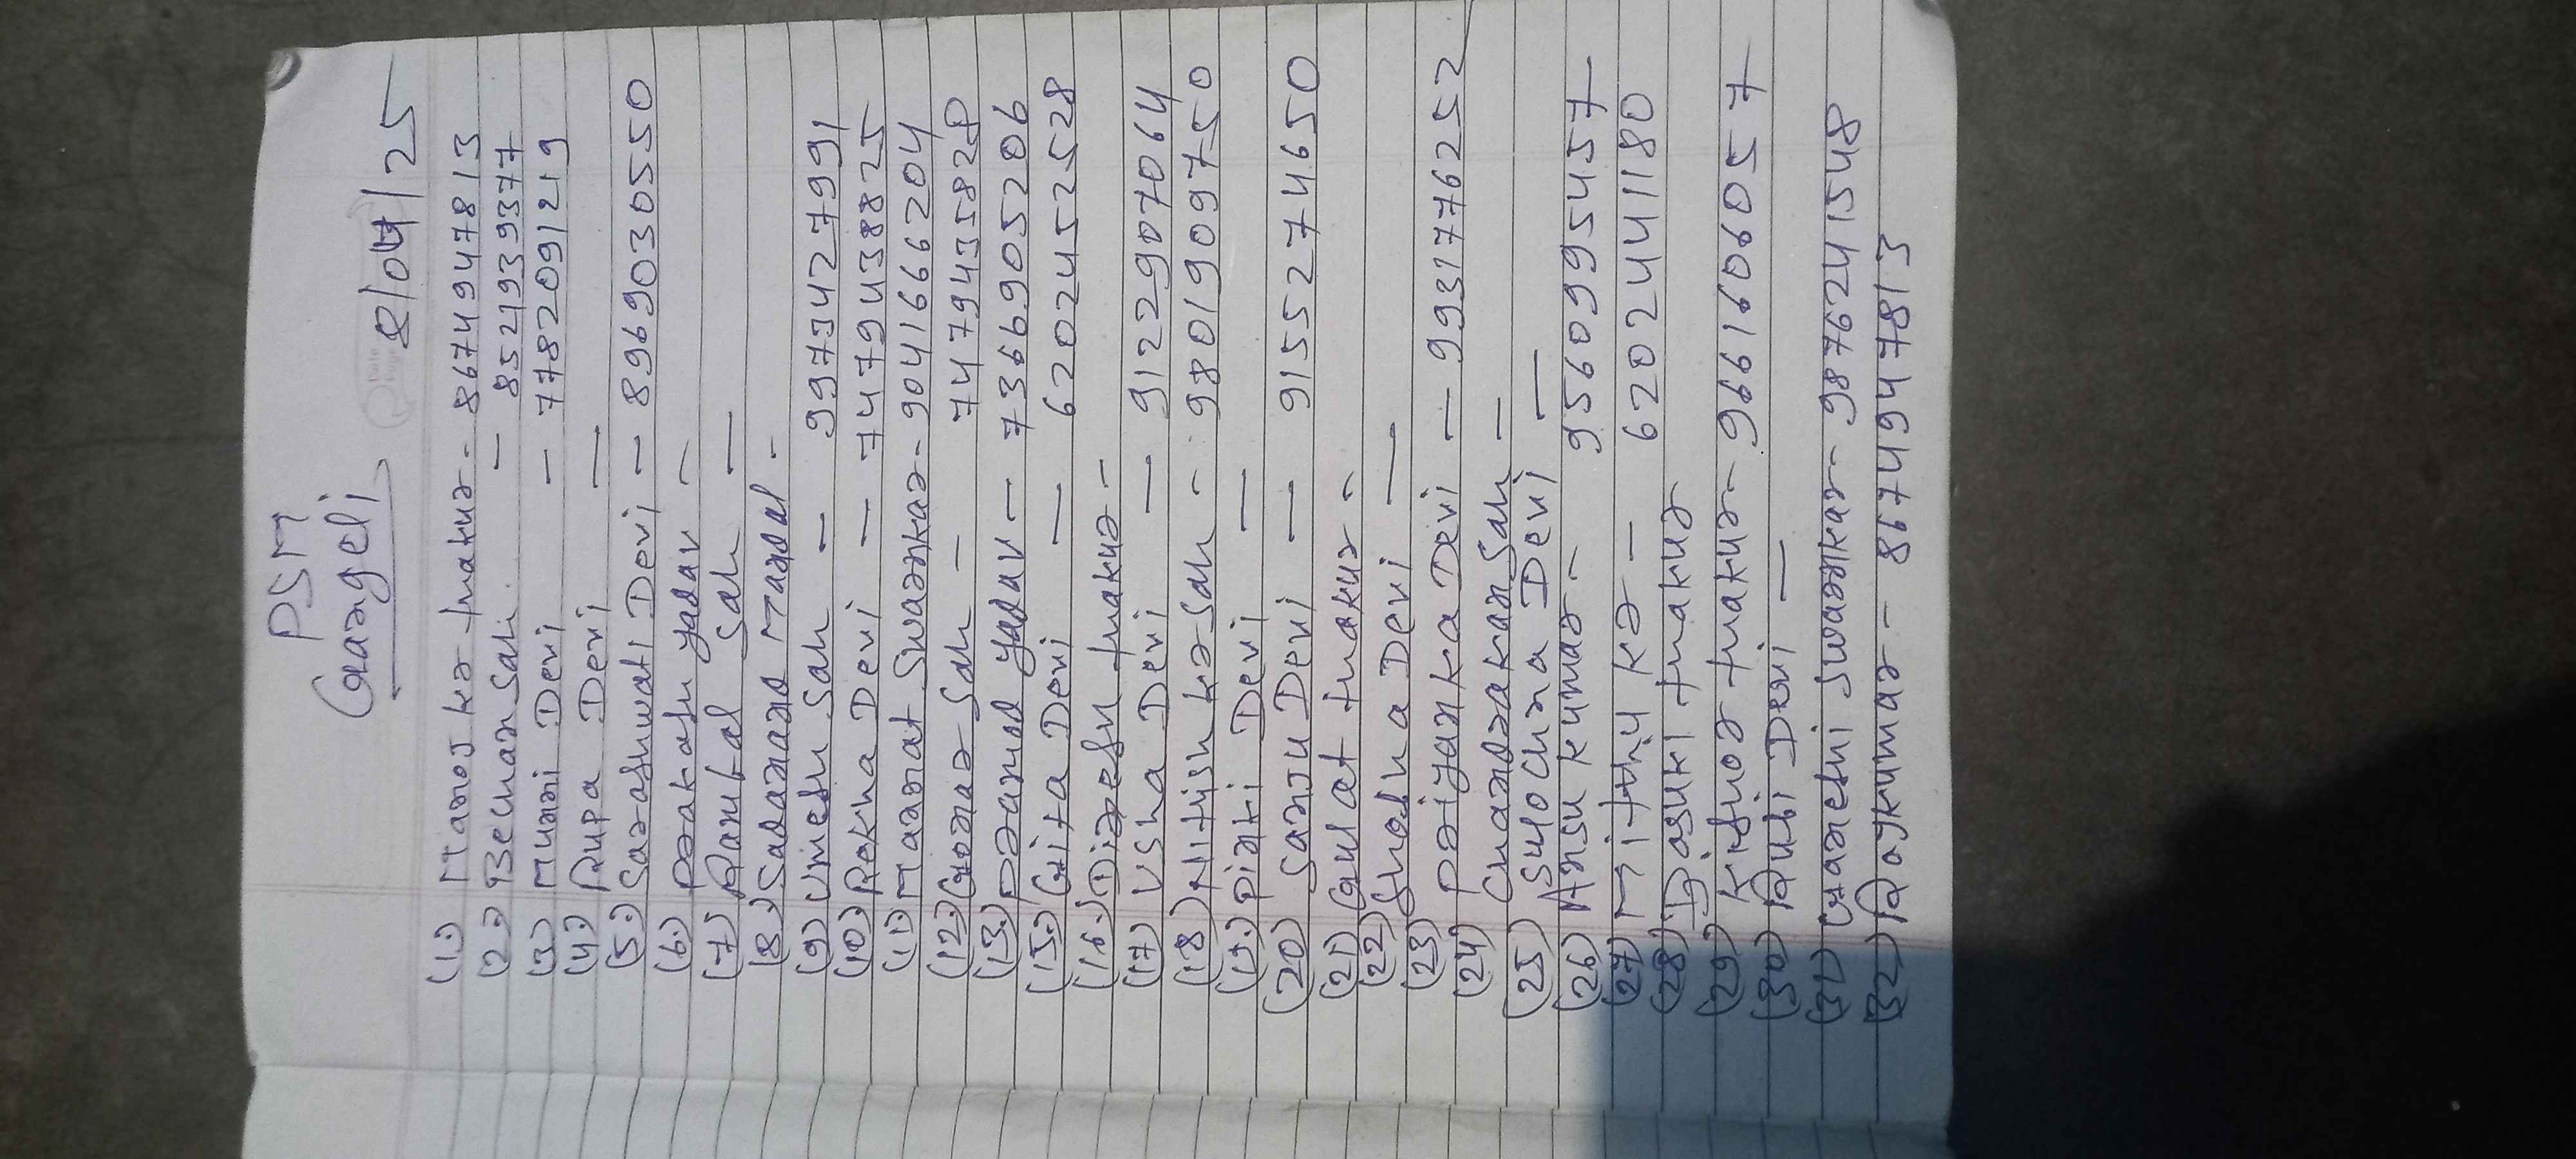 PSM
Gangeli
8/04/25
(1.) Manoj kr thakur - 8674947813
(2.) Bechan Sah. - 8521939377
(3) Munni Devi - 7782091219
(4.) Rupa Devi —
(5.) Sarashwati Devi - 8969030550
(6.) Prakash yadav -
(7) Ramlal Sah —
(8.) Sadanand Mandal -
(9) Umesh Sah - 9973427991
(10.) Rekha Devi - 7479438825
(11.) Marnat Swarnkar - 9041666204
(12.) Gonar Sah - 747943582
(13.) Pramod yadav - 7366905206
(15.) Gita Devi - 6202452528
(16.) Dinesh thakur -
(17) Usha Devi - 9122907064
(18) Nitish kr Sah - 9801909750
(19.) Pinki Devi —
(20) Sanju Devi - 9155274650
(21) Gulat thakur -
(22) Shobha Devi —
(23) Priyanka Devi - 9931776252
(24) Chandrakan Sah -
(25) Sulochna Devi —
(26) Ansu kumar - 9560995457
(27) Mithu kr - 6202441180
(28) Dasuki thakur
(29) Kishor thakur - 9661606057
(30) Rubi Devi —
(31) Ganeshi Swarnkar - 9876241548
(32) Rajkumar - 8674947813